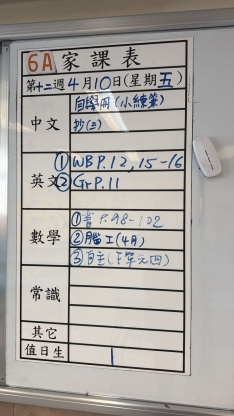 6A 家課表
第十二週4月10日(星期五)
中文
自學冊(小練筆)
抄(三)
英文
① WB P.12, 15-16
② Gr P.11
數學
①書 P.98-102
②腦工(4月)
③自主(下單元四)
常識
其它
值日生 1